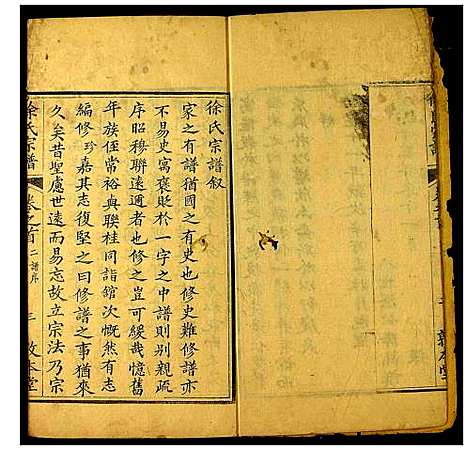 徐氏宗譜叙
家之有譜猶國之有史也修史難修譜亦
不易史寓褒貶於一字之中譜則別親疏
序昭穆聯遠邇者也修之豈可緩哉憶舊
年族侄常裕與聯桂同詣舘次慨然有志
編修珍嘉其志復堅之曰修譜之事猶來
久矣昔聖慮世遠而易忘故立宗法乃宗
徐氏宗譜
卷之首
二譜序
三
敦本堂